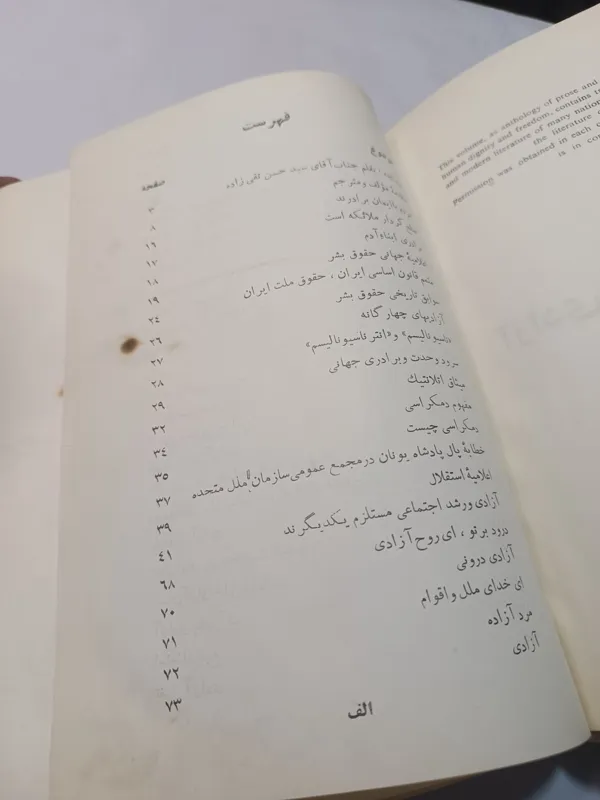 فهرست
صفحه
بقلم جناب آقای سید حسن تقی زاده
مؤلف و مترجم ۳
برادرند ۸
کردار ملائکه است ۱۶
برادری ابناء آدم ۱۷
اعلامیهٔ جهانی حقوق بشر ۱۸
متمم قانون اساسی ایران ، حقوق ملت ایران ۱۹
سوابق تاریخی حقوق بشر ۲٤
آزادیهای چهار گانه ۲۶
«ناسیونالیسم» و «انتر ناسیونالیسم» ۲۷
سرود وحدت و برادری جهانی ۲۸
میثاق اتلانتیك ۲۹
مفهوم دمکراسی ۳۲
دمکراسی چیست ۳٤
خطابهٔ پال پادشاه یونان در مجمع عمومی سازمان ملل متحده ۳۵
اعلامیهٔ استقلال ۳۷
آزادی ورشد اجتماعی مستلزم یکدیگرند ۳۹
درود بر تو ، ای روح آزادی ٤۱
آزادی درونی ۶۸
ای خدای ملل و اقوام ۷۰
مرد آزاده ۷۱
آزادی ۷۲
۷۳
الف
This volume, as anthology of prose and
human dignity and freedom, contains
and modern literature of many
the literature
Permission was obtained in each
is in